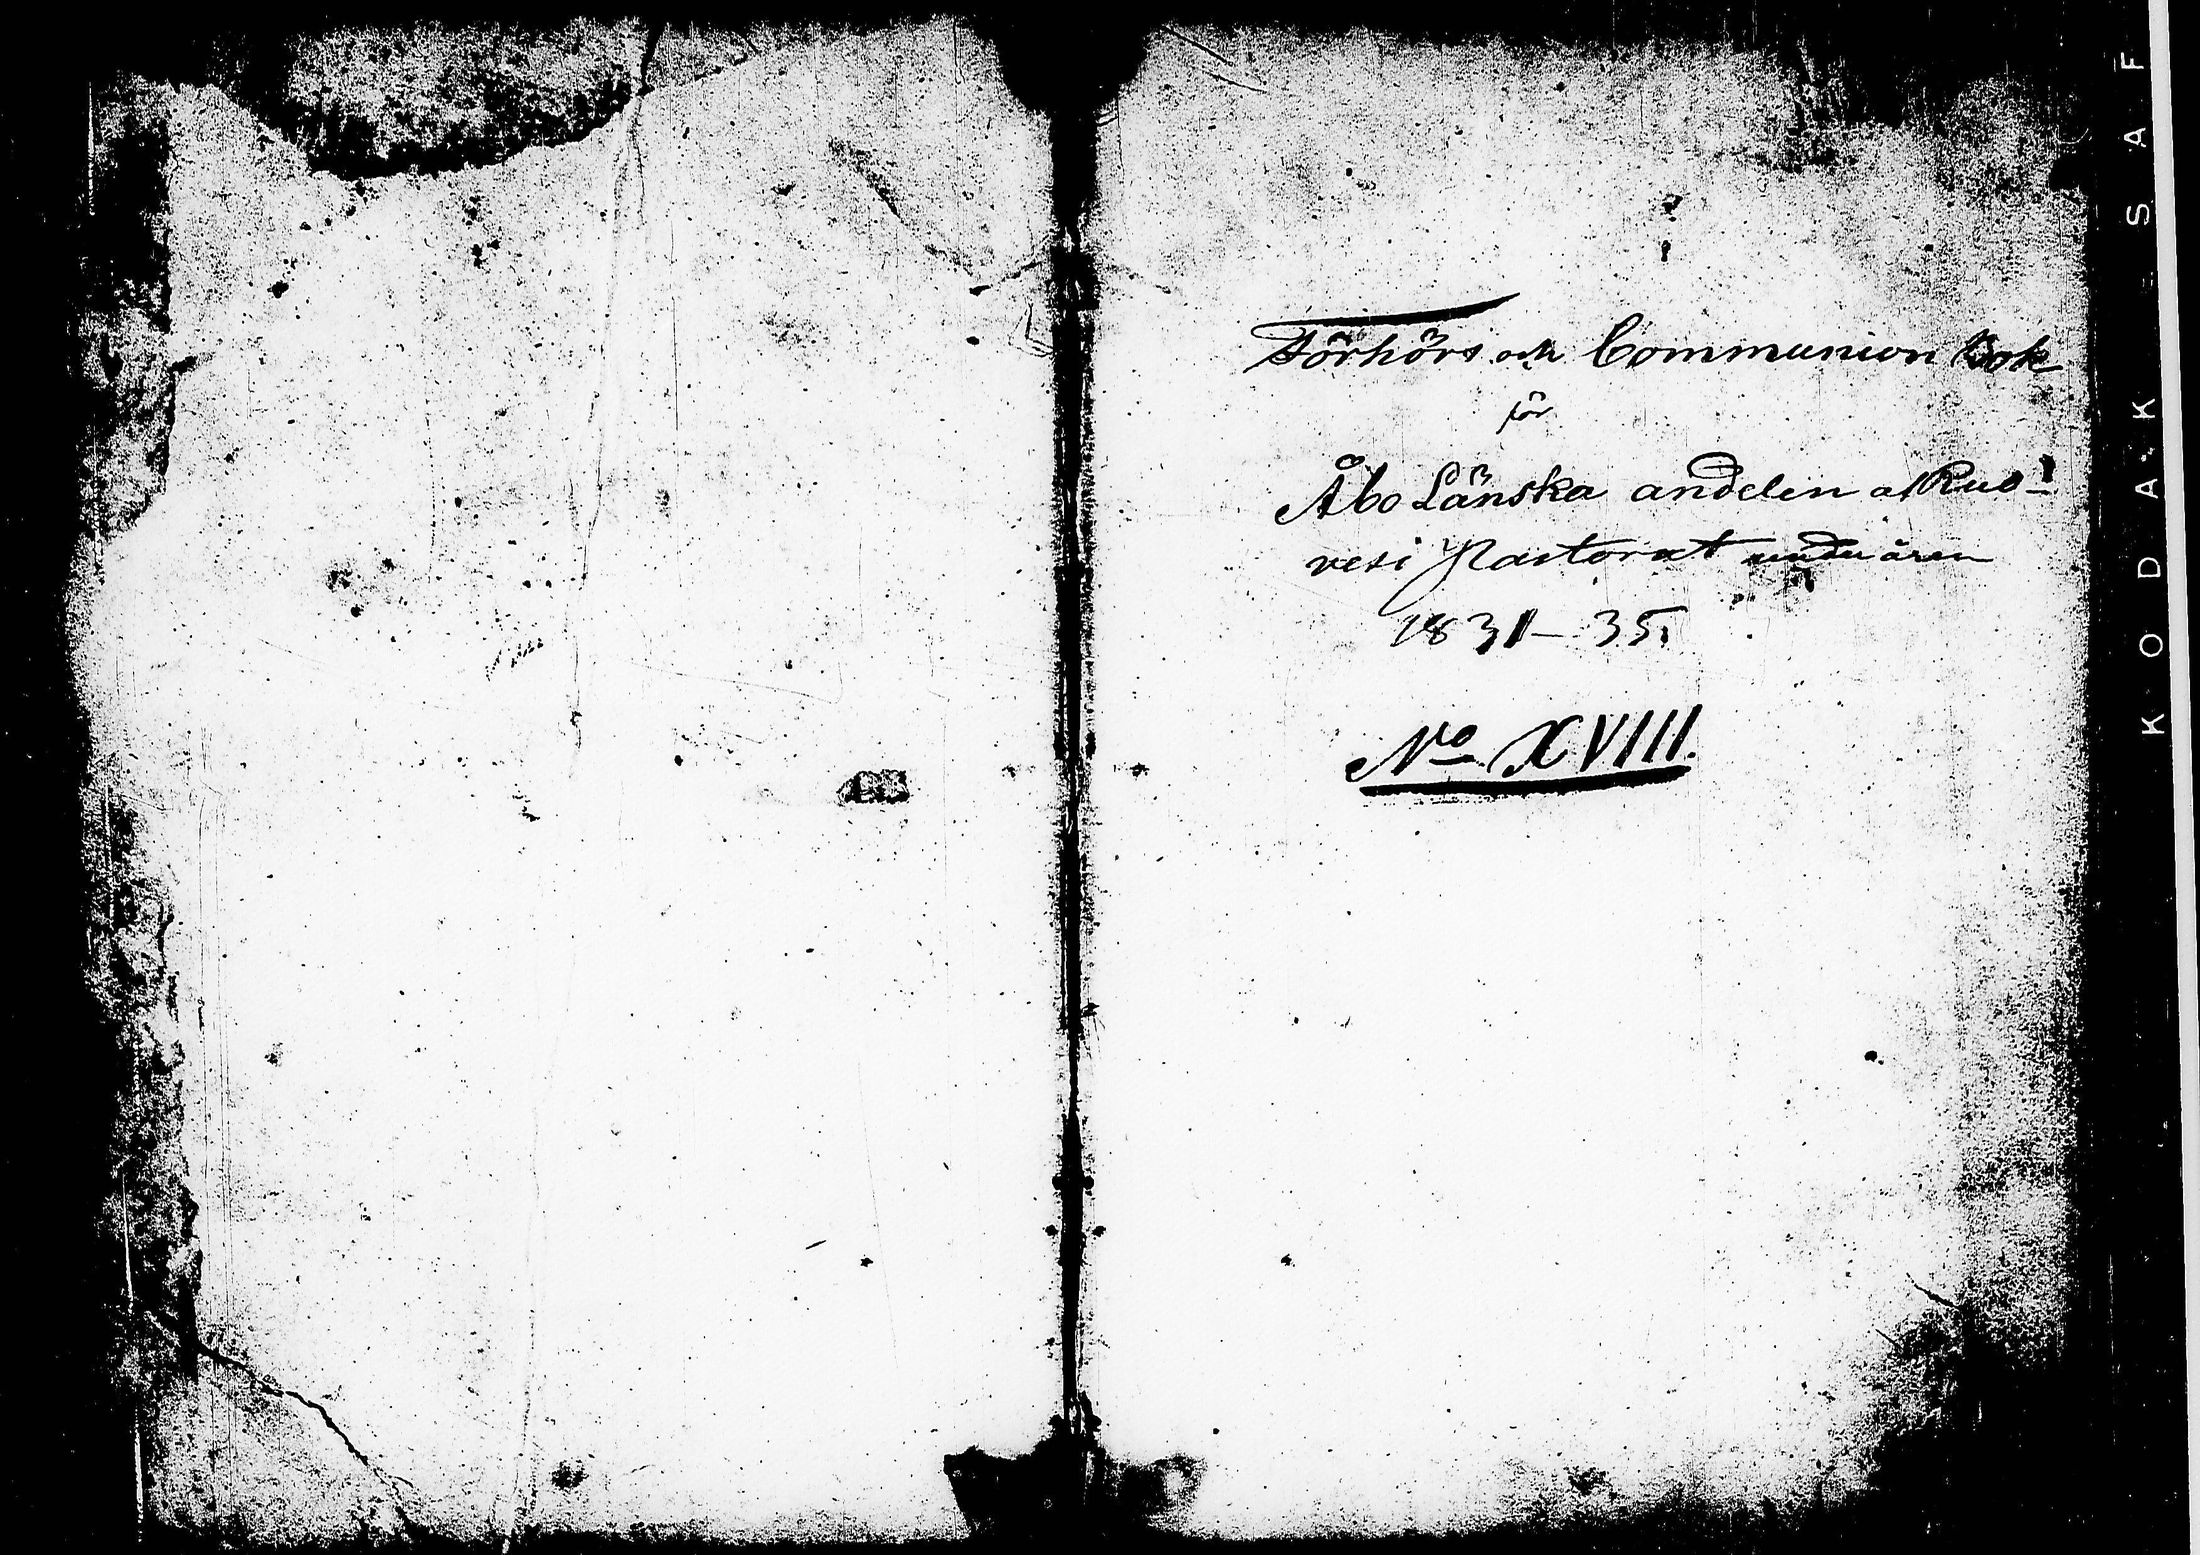 Förhörs och Communion Bok
för
Åbo Länska andelen af Ruo-
vesi Pastorat under åren
1831–35.
No XVIII.
KODAK SAF